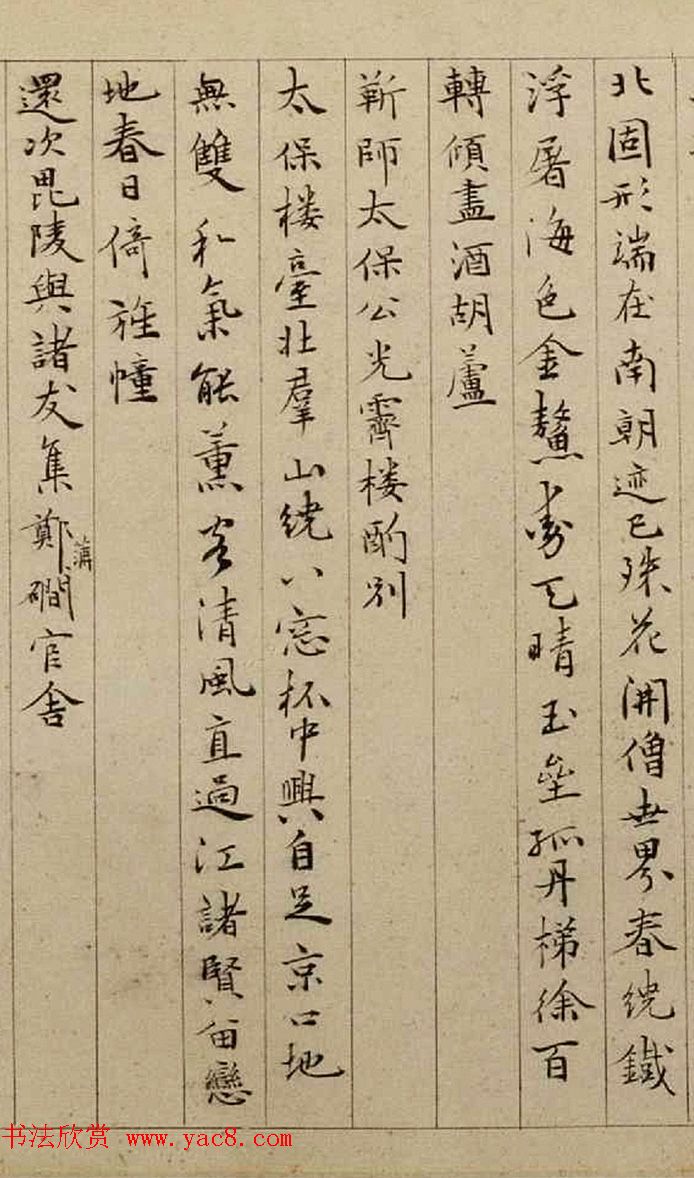 北固形端在南朝迹已殊花開僧世界春繞鐵
浮屠海色金鼇動天晴玉壘孤丹梯徐百
轉傾盡酒胡蘆
靳師太保公光霽楼酌別
太保楼臺壯羣山繞八窓杯中興自足京口地
無雙和氣能薰客清風直過江諸賢留戀
地春日倚旌幢
還次毘陵與諸友集鄭㵎官舍
蒲
书法欣赏 www.yac8.com